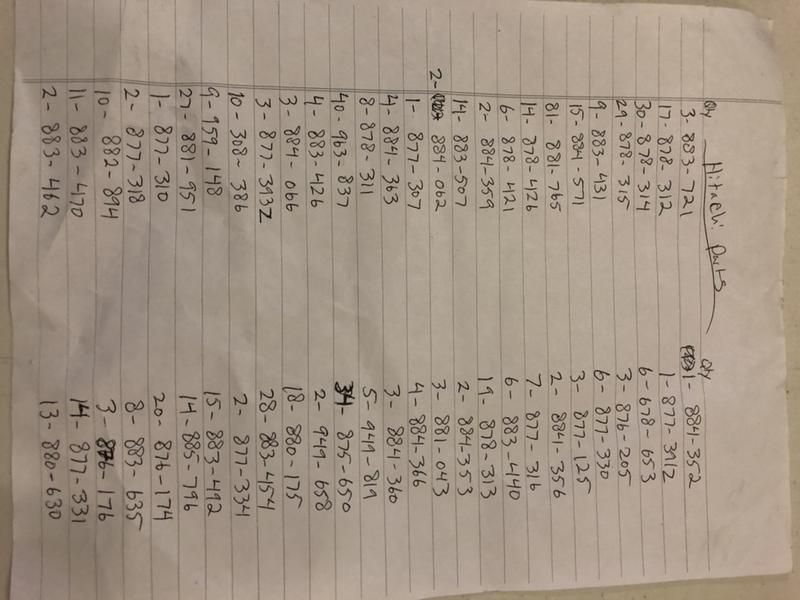 Hitachi Parts
Qty
3- 883-721
17- 878-312
30- 878-314
29- 878-315
9- 883-431
15- 884-571
81- 881-765
14- 878-426
6- 878-421
2- 884-359
14- 883-507
2- 884-062
1- 877-307
4- 884-363
8- 878-311
40- 963-837
4- 883-426
3- 884-066
3- 877-393Z
10- 308-386
9- 959-148
27- 881-951
1- 877-310
2- 877-318
10- 882-894
11- 883-470
2- 883-462
Qty
1- 884-352
1- 877-3912
6- 678-653
3- 876-205
6- 877-330
3- 877-125
2- 884-356
7- 877-316
6- 883-440
19- 878-313
2- 884-353
3- 881-043
4- 884-366
3- 884-360
5- 949-819
34- 805-650
2- 949-658
18- 880-175
28- 883-454
2- 877-334
15- 883-492
14- 885-796
20- 876-174
8- 883-635
3- 876-176
14- 877-331
13- 880-630